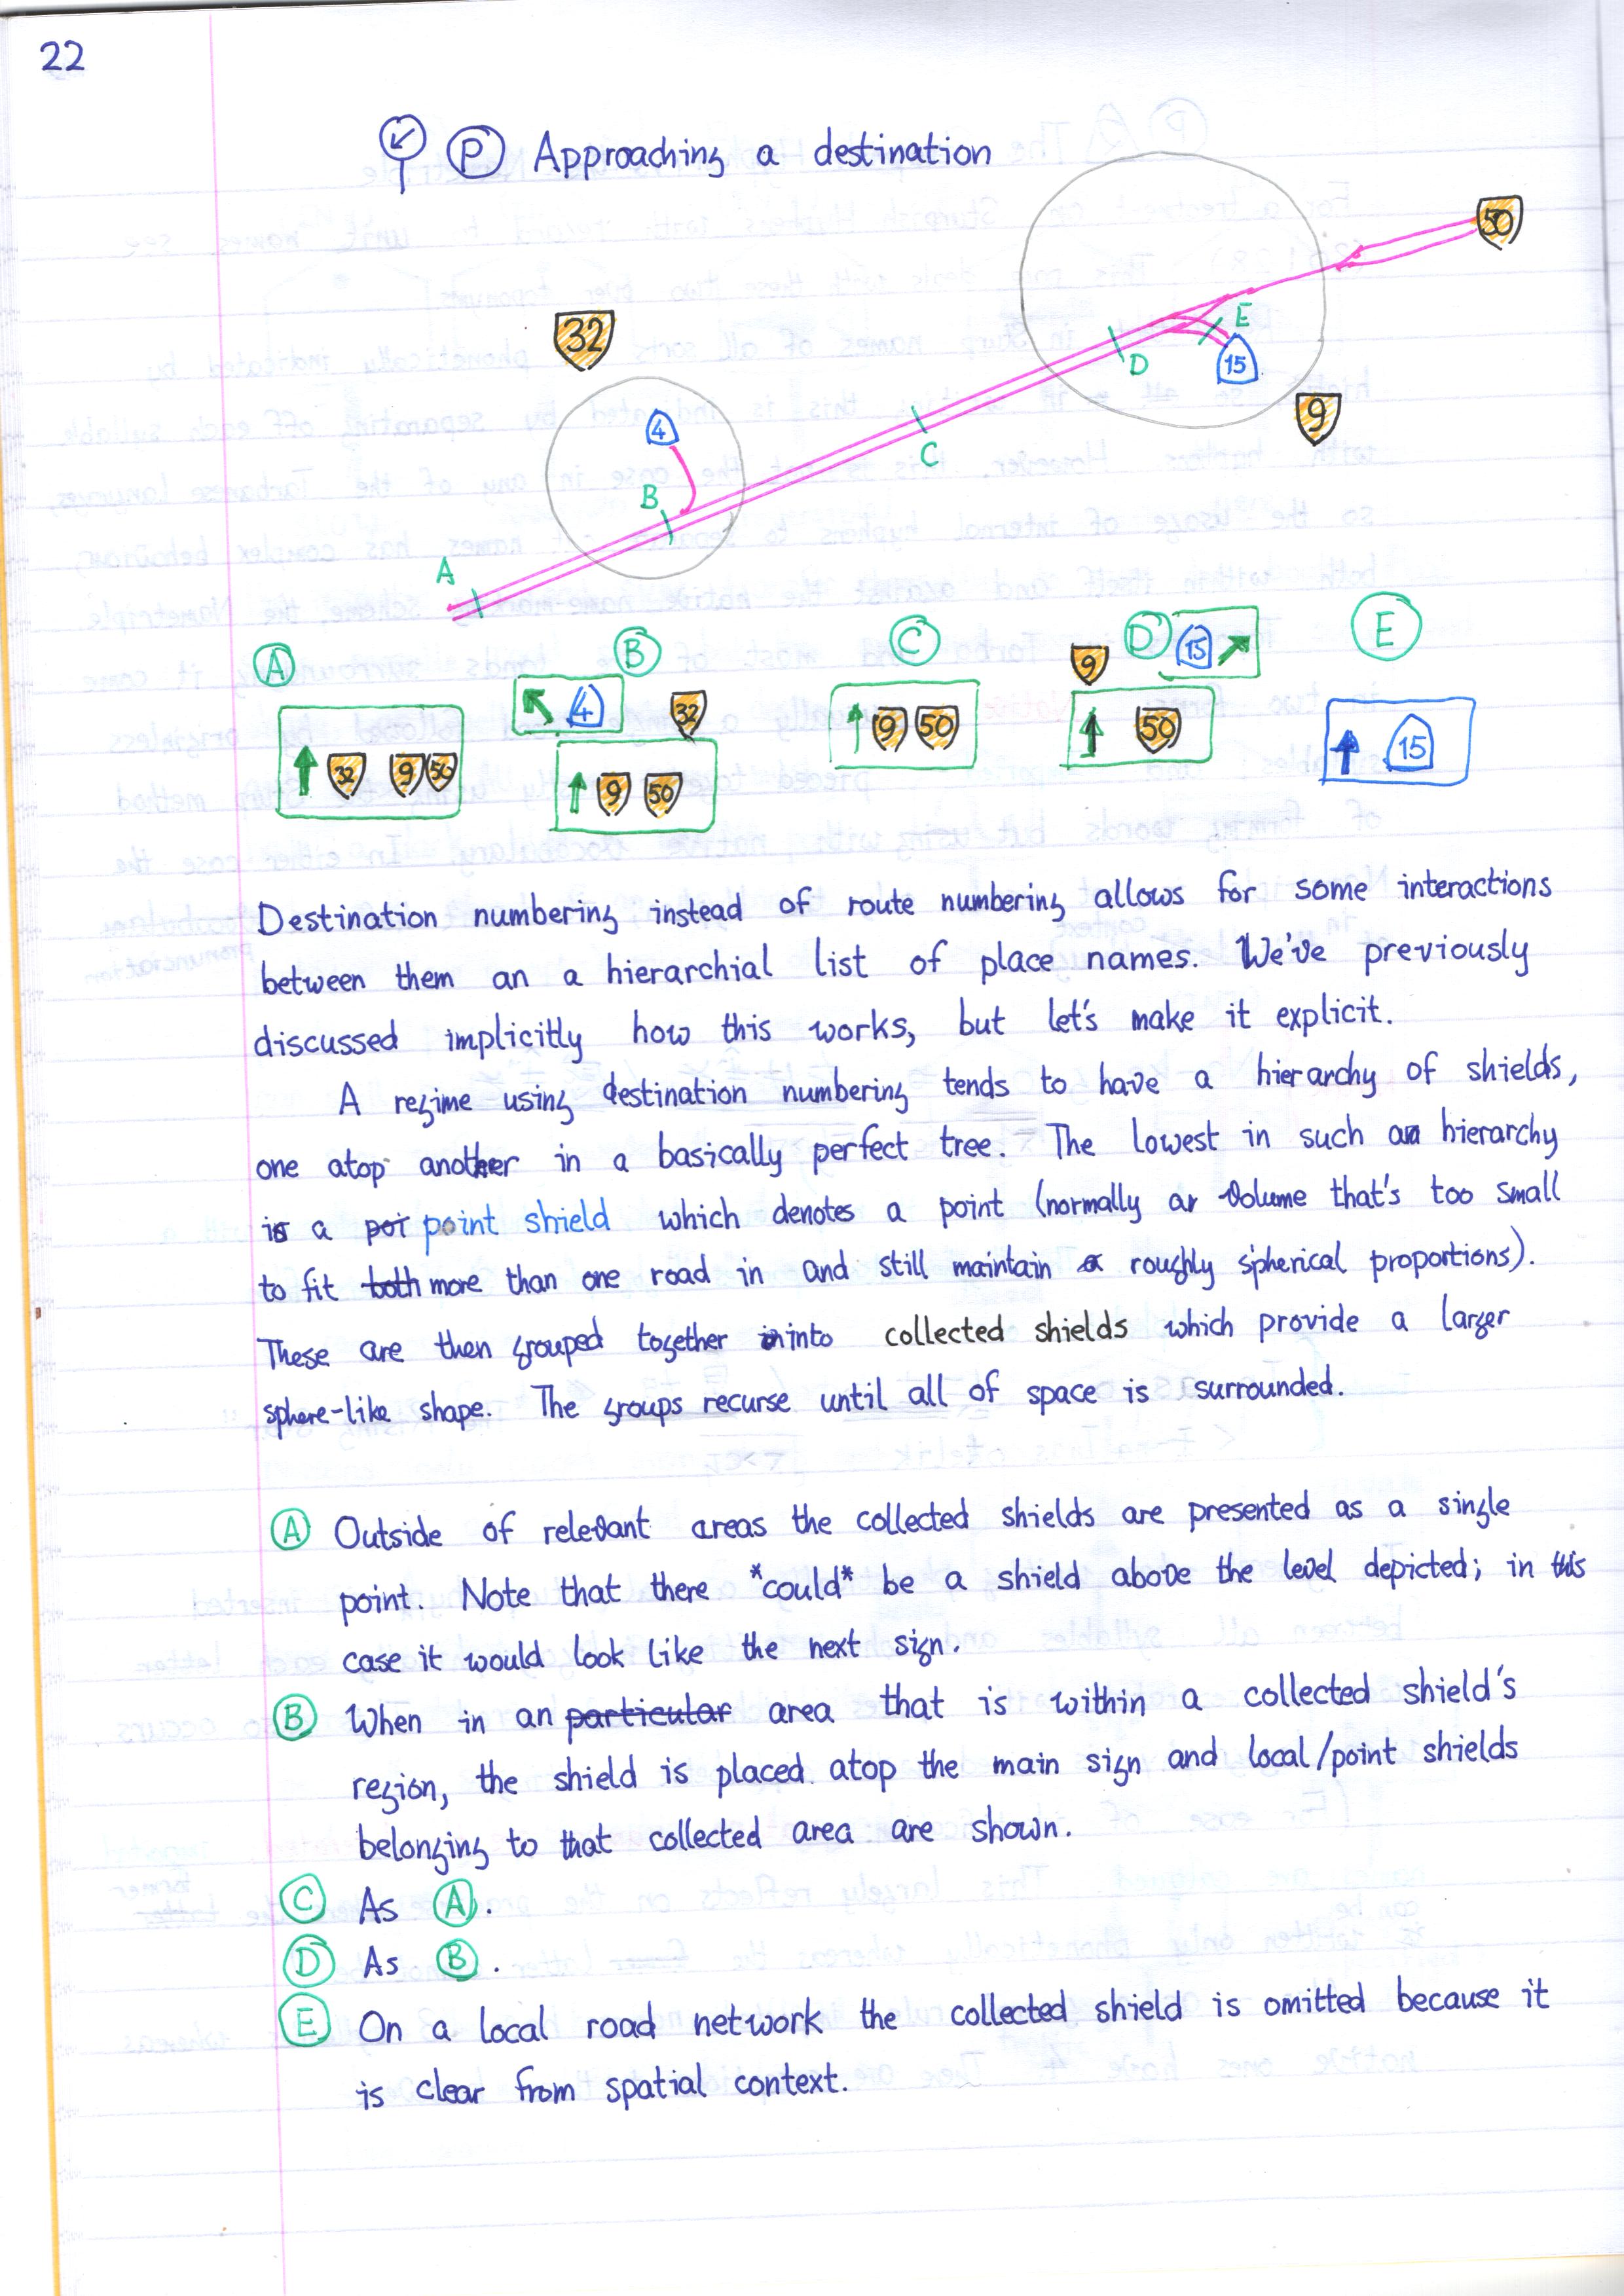 22
P Approaching a destination
50
32
E
15
D
9
4
C
B
A
A B C D 15 E
9
4 32
9 50 50 15
32 9 50
9 50
Destination numbering instead of route numbering allows for some interactions
between them an a hierarchial list of place names. We've previously
discussed implicitly how this works, but let's make it explicit.
A regime using destination numbering tends to have a hierarchy of shields,
one atop another in a basically perfect tree. The lowest in such a hierarchy
is a poi point shield which denotes a point (normally a volume that's too small
to fit both more than one road in and still maintain a roughly spherical proportions).
These are then grouped together into collected shields which provide a larger
sphere-like shape. The groups recurse until all of space is surrounded.
A Outside of relevant areas the collected shields are presented as a single
point. Note that there *could* be a shield above the level depicted; in this
case it would look like the next sign.
B When in an particular area that is within a collected shield's
region, the shield is placed atop the main sign and local/point shields
belonging to that collected area are shown.
C As A.
D As B.
E On a local road network the collected shield is omitted because it
is clear from spatial context.